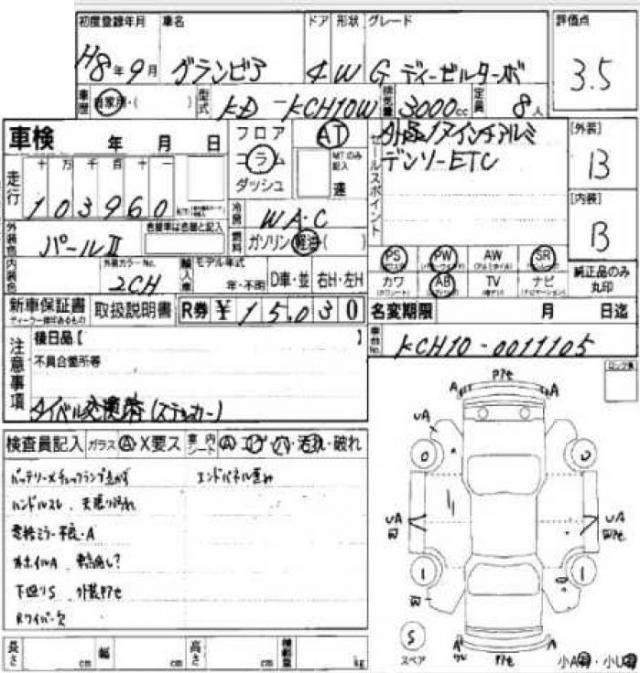 初度登録年月 車名 ドア 形状 グレード 評価点
H8年9月 グランビア 4 W G ディーゼルターボ 3.5
車歴 自家用・( ) 型式 KD-KCH10W 排気量 3000cc 定員 8人
車検 年 月 日
フロア AT
コラム MTのみ記入
ダッシュ 速
セールスポイント
デンソーETC
[外装] B
[内装] B
走行 十 万 千 百 十 一
103960 km
冷房 WAC
燃料 ガソリン・軽油( )
外装色 パールⅡ 色替車は色替と記入
内装色 外装カラーNo. 2CH
輸入車 モデル年式 年・不明 D車・並 右H・左H
PS PW AW SR
カワ AB TV ナビ
純正品のみ丸印
新車保証書 取扱説明書 R券 ¥15,030
ディーラー印があるもの
名変期限 月 日迄
車台No. KCH10-0011105
注意事項
後日品[ ]
不具合箇所等
タイベル交換済(ステッカー)
ロック家
検査員記入 ガラス A・X要ス 車内シート A・コゲ・穴・汚れ・破れ
バッテリー×チェックランプ点かず エンドパネル歪み
ハンドルスレ 天張り汚れ
電格ミラー不良・A
ホイルA
下回りS 外装Pアセ
Rワイパー欠
長さ cm 幅 cm 高さ cm 積載量 kg
A Pアセ A
UA
0 0
UA
UA
1 1
W
S
スペア
Pアセ
小A・小U